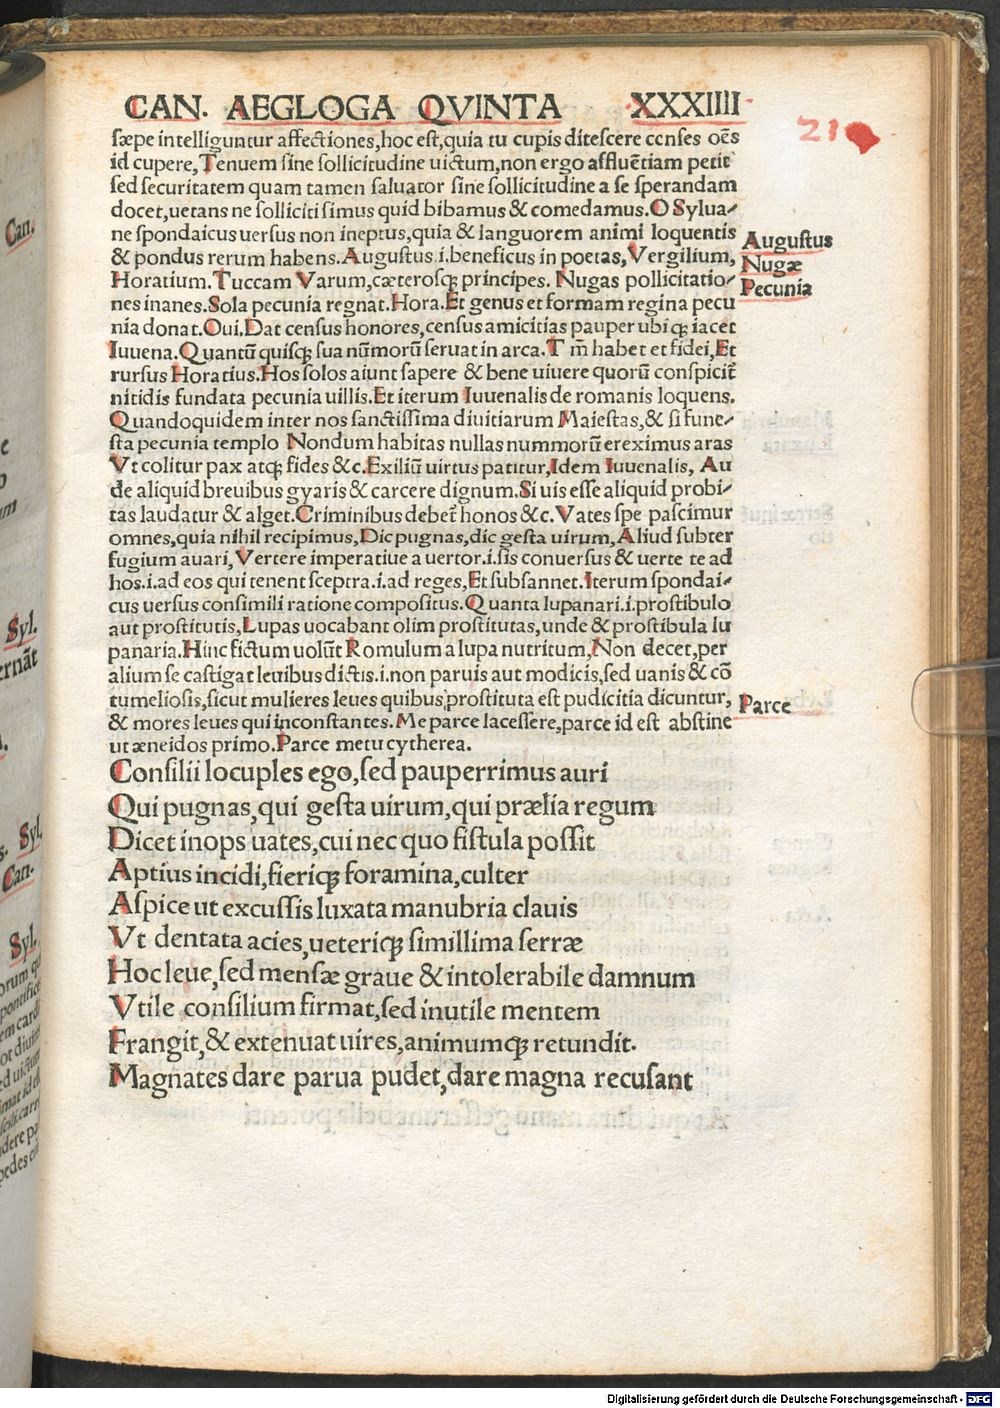 CAN. AEGLOGA QVINTA XXXIIII
21
sæpe intelliguntur affectiones,hoc est,quia tu cupis ditescere censes oēs
id cupere,Tenuem sine sollicitudine uictum,non ergo affluētiam petit
sed securitatem quam tamen saluator sine sollicitudine a se sperandam
docet,uetans ne solliciti simus quid bibamus & comedamus.O Sylua/
ne spondaicus uersus non ineptus,quia & languorem animi loquentis
& pondus rerum habens.Augustus .i.beneficus in poetas,Vergilium,
Horatium.Tuccam Varum,cæterosq; principes. Nugas pollicitatio/
nes inanes.Sola pecunia regnat.Hora.Et genus et formam regina pecu
nia donat.Oui.Dat census honores,census amicitias pauper ubiq; iacet
Iuuena.Quantū quisq; sua nūmorū seruat in arca.T m̄ habet et fidei,Et
rursus Horatius.Hos solos aiunt sapere & bene uiuere quorū conspicit̄
nitidis fundata pecunia uillis.Et iterum Iuuenalis de romanis loquens.
Quandoquidem inter nos sanctissima diuitiarum Maiestas,& si fune/
sta pecunia templo Nondum habitas nullas nummorū ereximus aras
Vt colitur pax atq; fides &c.Exiliū uirtus patitur,Idem Iuuenalis, Au
de aliquid breuibus gyaris & carcere dignum.Si uis esse aliquid probi/
tas laudatur & alget.Criminibus debet̄ honos &c.Vates spe pascimur
omnes,quia nihil recipimus,Dic pugnas,dic gesta uirum,Aliud subter
fugium auari,Vertere imperatiue a uertor.i.sis conuersus & uerte te ad
hos.i.ad eos qui tenent sceptra.i.ad reges,Et subsannet.Iterum spondai/
cus uersus consimili ratione compositus.Quanta lupanari.i.prostibulo
aut prostitutis,Lupas uocabant olim prostitutas,unde & prostibula lu
panaria.Hinc fictum uolūt Romulum a lupa nutritum,Non decet,per
alium se castigat leuibus dictis.i.non paruis aut modicis,sed uanis & cō
tumeliosis,sicut mulieres leues quibus prostituta est pudicitia dicuntur,
& mores leues qui inconstantes.Me parce lacessere,parce id est abstine
ut æneidos primo.Parce metu cytherea.
Augustus
Nugæ
Pecunia
Parce
Consilii locuples ego,sed pauperrimus auri
Qui pugnas,qui gesta uirum,qui prælia regum
Dicet inops uates,cui nec quo fistula possit
Aptius incidi,fieriq; foramina,culter
Aspice ut excussis luxata manubria clauis
Vt dentata acies,ueteriq; simillima serræ
Hoc leue,sed mensæ graue & intolerabile damnum
Vtile consilium firmat,sed inutile mentem
Frangit,& extenuat uires,animumq; retundit.
Magnates dare parua pudet,dare magna recusant
Can.
Syl.
Syl.
Can.
Syl.
Digitalisierung gefördert durch die Deutsche Forschungsgemeinschaft - DFG